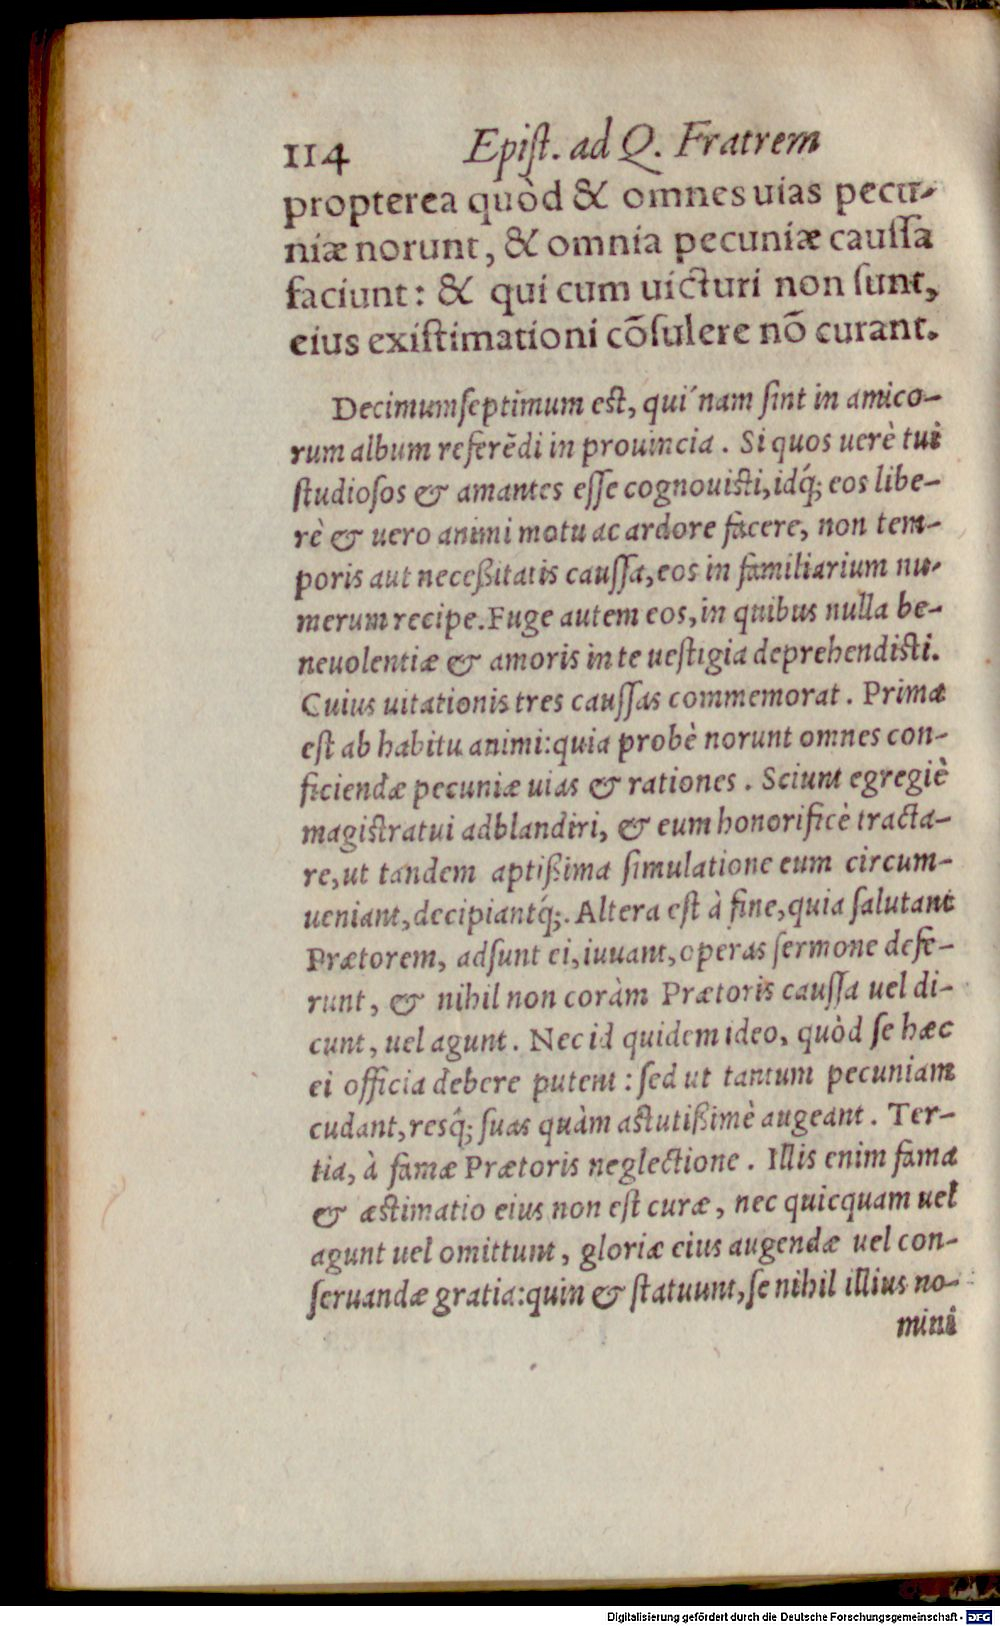 114 Epiſt. ad Q. Fratrem
propterea quòd & omnes uias pecu-
niæ norunt, & omnia pecuniæ cauſſa
faciunt: & qui cum uicturi non ſunt,
eius exiſtimationi cõſulere nõ curant.
Decimumſeptimum est, qui nam ſint in amico-
rum album referẽdi in prouincia. Si quos uerè tui
ſtudioſos & amantes eſſe cognouisti, idq́; eos libe-
rè & uero animi motu ac ardore facere, non tem-
poris aut neceßitatis cauſſa, eos in familiarium nu-
merum recipe. Fuge autem eos, in quibus nulla be-
neuolentiæ & amoris in te ueſtigia deprehendisti.
Cuius uitationis tres cauſſas commemorat. Prima
eſt ab habitu animi: quia probè norunt omnes con-
ficiendæ pecuniæ uias & rationes. Sciunt egregiè
magistratui adblandiri, & eum honorificè tracta-
re, ut tandem aptißima ſimulatione eum circum-
ueniant, decipiantq́;. Altera eſt à fine, quia ſalutant
Prætorem, adſunt ei, iuuant, operas ſermone defe-
runt, & nihil non coràm Prætoris cauſſa uel di-
cunt, uel agunt. Nec id quidem ideo, quòd ſe hæc
ei officia debere putent: ſed ut tantum pecuniam
cudant, resq́; ſuas quàm astutißimè augeant. Ter-
tia, à famæ Prætoris neglectione. Illis enim fama
& æstimatio eius non eſt curæ, nec quicquam uel
agunt uel omittunt, gloriæ eius augendæ uel con-
ſeruandæ gratia: quin & ſtatuunt, ſe nihil illius no-
mini
Digitalisierung gefördert durch die Deutsche Forschungsgemeinschaft - DFG